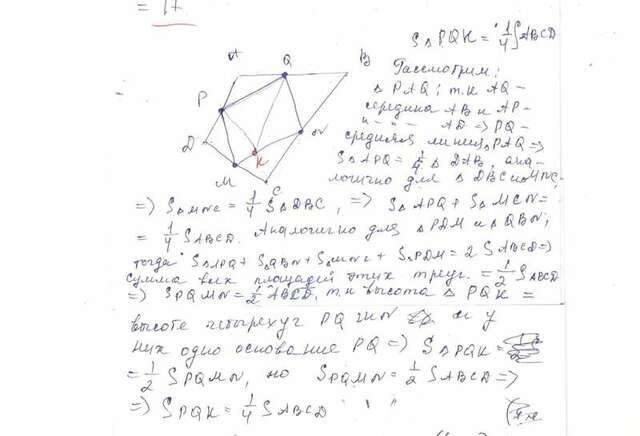 = 17
S△PQK = 1/4 SABCD
A Q B
P
D N
K
M
C
Рассмотрим:
△ PAQ; т.к AQ -
середина AB и AP -
-"- AD => PQ -
средняя линия △PAQ =>
S△APQ = 1/4 △ DAB, ана-
логично для △ DBC и MNC
=> S△MNC = 1/4 S△DBC, => S△APQ + S△MCN =
= 1/4 SABCD. Аналогично для △PDM и △QBN,
тогда S△APQ + S△QBN + S△MNC + S△PDM = 2 SABCD =>
сумма всех площадей этих треуг. = 1/2 SABCD
=> SPQMN = 1/2 ABCD, т.к высота △ PQK =
высоте четырехуг PQMN и у
них одно основание PQ => S△PQK =
= 1/2 SPQMN, но SPQMN = 1/2 SABCD =>
=> SPQK = 1/4 SABCD